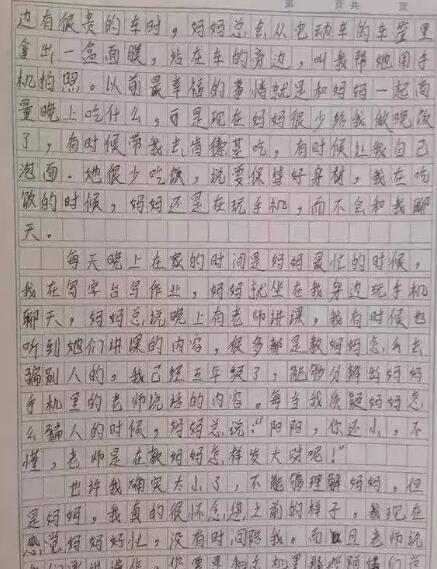 第 页 共 页
边有很贵的车时，妈妈总会从电动车的车筐里
拿出一盒面膜，站在车的旁边，叫我帮她用手
机拍照。以前最幸福的事情就是和妈妈一起商
量晚上吃什么，可是现在妈妈很少给我做晚饭
了，有时候带我去肯德基吃，有时候让我自己
泡面。她很少吃饭，说要保持好身材，我在吃
饭的时候，妈妈还是在玩手机，而不会和我聊
天。
每天晚上在家的时间是妈妈最忙的时候，
我在写字台写作业，妈妈就坐在我身边玩手机
聊天，妈妈总说晚上有老师讲课，我有时候也
听到她们讲课的内容，很多都是教妈妈怎么去
骗别人的，我已经五年级了，能够分辨出妈妈
手机里的老师说话的内容。每当我质疑妈妈怎
么骗人的时候，妈妈总说：“阳阳，你还小，不
懂，老师是在教妈妈怎样发大财呢！”
也许我确实太小了，不能够理解妈妈，但
是妈妈，我真的很怀念您之前的样子，我现在
感觉妈妈好忙，没有时间陪我。而且老师说